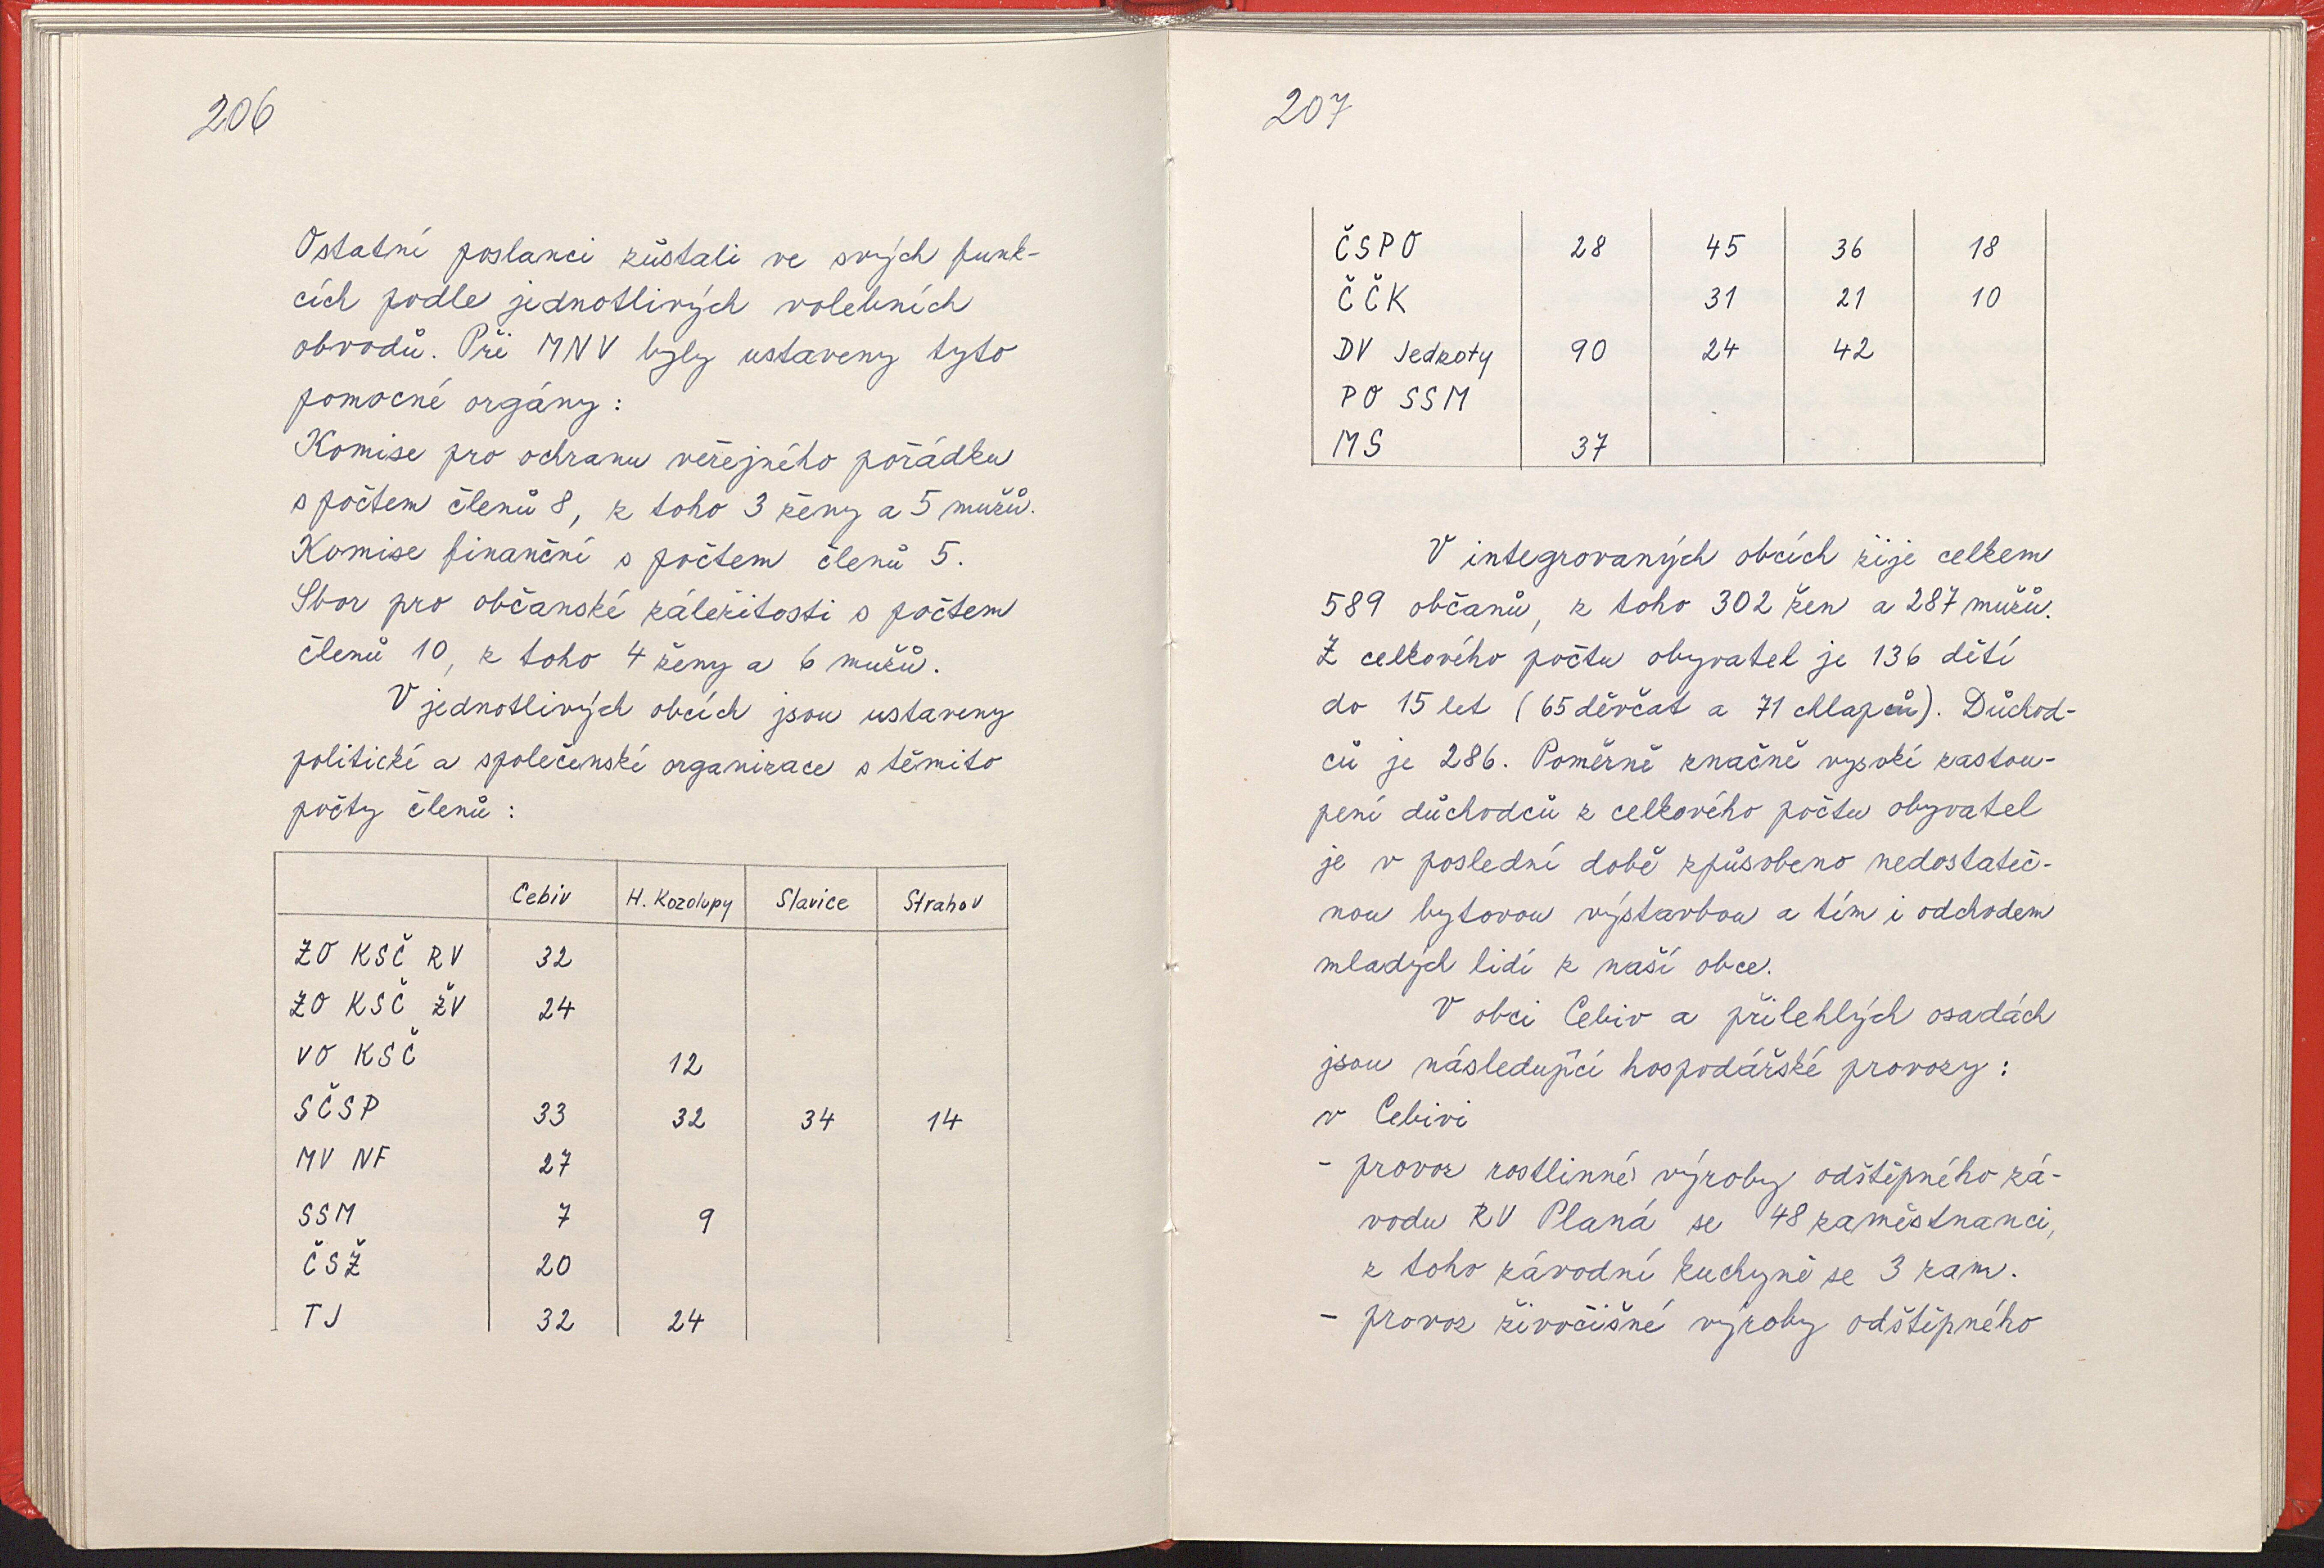 206
Ostatní poslanci zůstali ve svých funk-
cích podle jednotlivých volebních
obvodů. Při MNV byly ustaveny tyto
pomocné orgány:
Komise pro ochranu veřejného pořádku
s počtem členů 8, z toho 3 ženy a 5 mužů.
Komise finanční s počtem členů 5.
Sbor pro občanské záležitosti s počtem
členů 10, z toho 4 ženy a 6 mužů.
V jednotlivých obcích jsou ustaveny
politické a společenské organizace s těmito
počty členů:
Cebiv H. Kozolupy Slavice Strahov
ZO KSČ RV 32
ZO KSČ ŽV 24
VO KSČ 12
SČSP 33 32 34 14
MV NF 27
SSM 7 9
ČSŽ 20
TJ 32 24
207
ČSPO 28 45 36 18
ČČK 31 21 10
DV Jednoty 90 24 42
PO SSM
MS 37
V integrovaných obcích žije celkem
589 občanů, z toho 302 žen a 287 mužů.
Z celkového počtu obyvatel je 136 dětí
do 15 let (65 děvčat a 71 chlapců). Důchod-
ců je 286. Poměrně značně vysoké zastou-
pení důchodců z celkového počtu obyvatel
je v poslední době způsobeno nedostateč-
nou bytovou výstavbou a tím i odchodem
mladých lidí z naší obce.
V obci Cebiv a přilehlých osadách
jsou následující hospodářské provozy:
v Cebivi
- provoz rostlinné výroby odštěpného zá-
vodu RV Planá se 48 zaměstnanci,
z toho závodní kuchyně se 3 zam.
- provoz živočišné výroby odštěpného